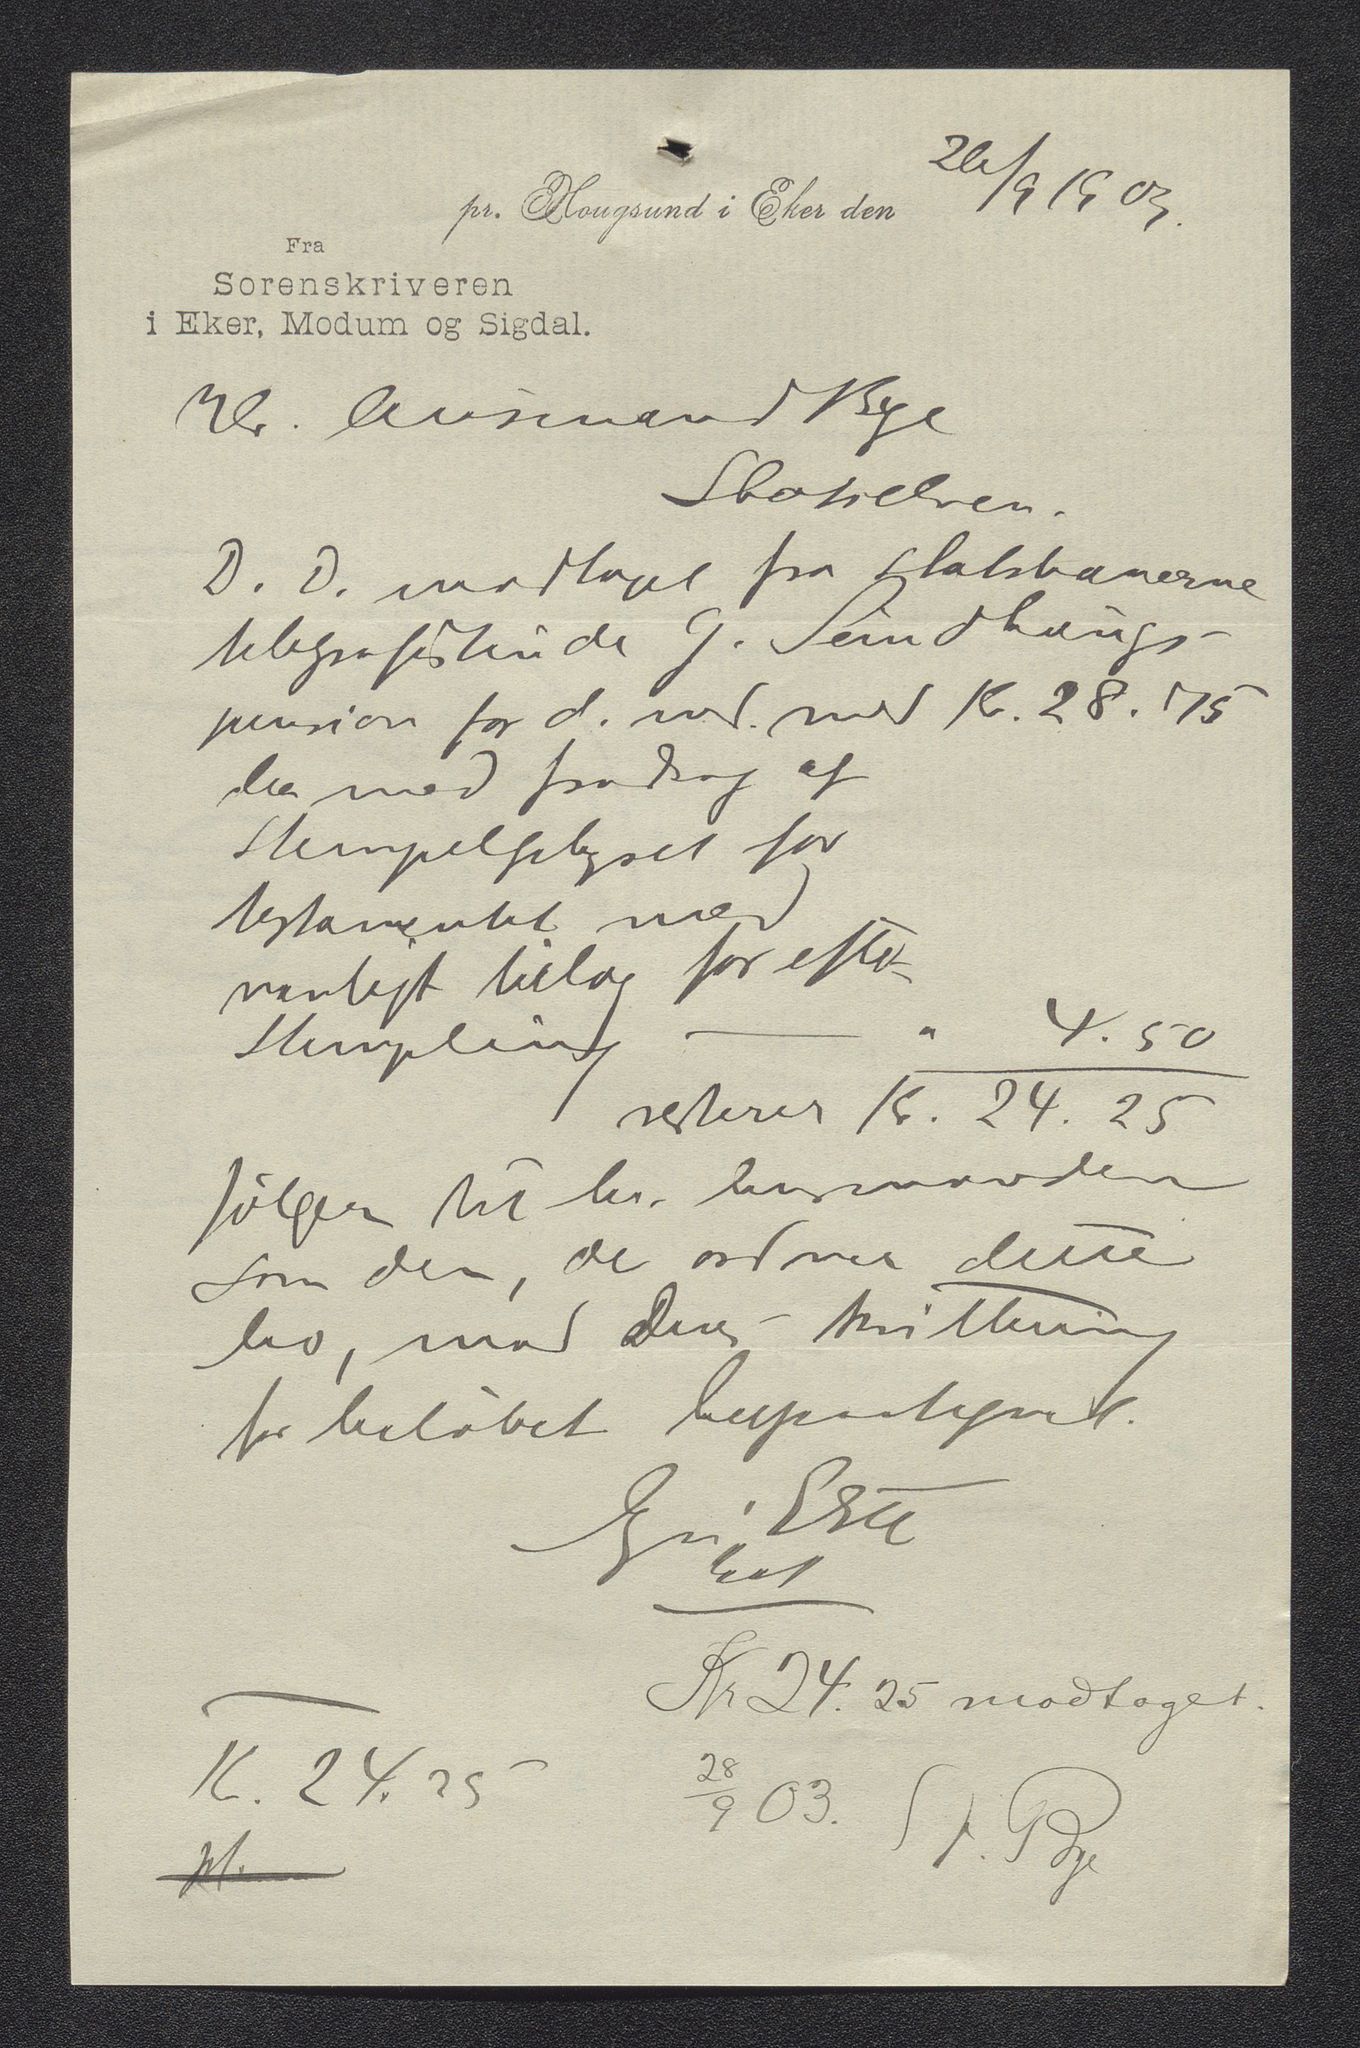 pr. Hougsund i Eker den 26/9 1903.
Fra
Sorenskriveren
i Eker, Modum og Sigdal.
Hr. lensmand Bye
Skotselven.
D. D. modtaget fra statsbanerne
telegrafistinde G. Seindhaugs
pension for d. md. med Kr. 28.75
der med fradrag af
Stempelgebyret for
testamentet med
vanligt tillæg for efter-
stempling — " 4.50
resterer Kr. 24.25
følger til hr. lensmanden
som den, de ordner dette
bo, mod Deres kvittering
for beløbet
Kr 24.25 modtaget.
K. 24.25
28/9 03. Bye